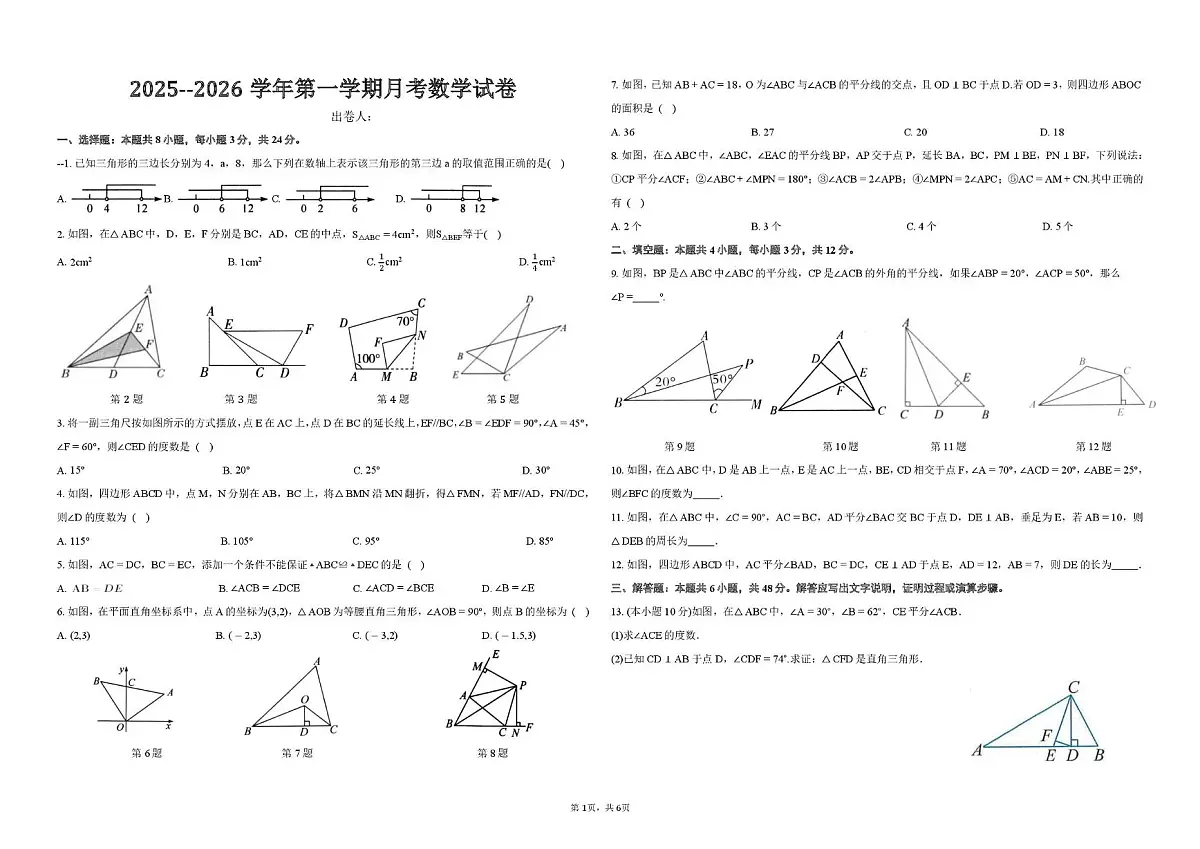 2025--2026 学年第一学期月考数学试卷
出卷人:
一、选择题：本题共 8 小题，每小题 3 分，共 24 分。
--1. 已知三角形的三边长分别为 4，a，8，那么下列在数轴上表示该三角形的第三边 a 的取值范围正确的是( )
A. 0 4 12 B. 0 6 12 C. 0 2 6 D. 0 8 12
2. 如图，在△ ABC 中，D，E，F 分别是 BC，AD，CE 的中点，S△ABC = 4cm²，则S△BEF等于( )
A. 2cm² B. 1cm² C. 1/2 cm² D. 1/4 cm²
A E F B D C
第 2 题
A E F B C D
第 3 题
C D 70° N F 100° A M B
第 4 题
D A B E C
第 5 题
3. 将一副三角尺按如图所示的方式摆放，点 E 在 AC 上，点 D 在 BC 的延长线上，EF//BC，∠B = ∠EDF = 90°，∠A = 45°，
∠F = 60°，则∠CED 的度数是 ( )
A. 15° B. 20° C. 25° D. 30°
4. 如图，四边形 ABCD 中，点 M，N 分别在 AB，BC 上，将△ BMN 沿 MN 翻折，得△ FMN，若 MF//AD，FN//DC，
则∠D 的度数为 ( )
A. 115° B. 105° C. 95° D. 85°
5. 如图，AC = DC，BC = EC，添加一个条件不能保证▲ABC≌▲DEC的是 ( )
A. AB = DE B. ∠ACB = ∠DCE C. ∠ACD = ∠BCE D. ∠B = ∠E
6. 如图，在平面直角坐标系中，点 A 的坐标为(3,2)，△ AOB 为等腰直角三角形，∠AOB = 90°，则点 B 的坐标为 ( )
A. (2,3) B. ( − 2,3) C. ( − 3,2) D. ( − 1.5,3)
y B C A O x
第 6 题
A O B D C
第 7 题
E M P A B C N F
第 8 题
7. 如图，已知 AB + AC = 18，O 为∠ABC 与∠ACB 的平分线的交点，且 OD ⊥ BC 于点 D.若 OD = 3，则四边形 ABOC
的面积是 ( )
A. 36 B. 27 C. 20 D. 18
8. 如图，在△ ABC 中，∠ABC，∠EAC 的平分线 BP，AP 交于点 P，延长 BA，BC，PM ⊥ BE，PN ⊥ BF，下列说法：
①CP 平分∠ACF；②∠ABC + ∠MPN = 180°；③∠ACB = 2∠APB；④∠MPN = 2∠APC；⑤AC = AM + CN.其中正确的
有 ( )
A. 2 个 B. 3 个 C. 4 个 D. 5 个
二、填空题：本题共 4 小题，每小题 3 分，共 12 分。
9. 如图，BP 是△ ABC 中∠ABC 的平分线，CP 是∠ACB 的外角的平分线，如果∠ABP = 20°，∠ACP = 50°，那么
∠P =_____°.
A P 20° 50° B C M
第 9 题
A D E F B C
第 10 题
A E C D B
第 11 题
B C A E D
第 12 题
10. 如图，在△ ABC 中，D 是 AB 上一点，E 是 AC 上一点，BE，CD 相交于点 F，∠A = 70°，∠ACD = 20°，∠ABE = 25°，
则∠BFC 的度数为_____．
11. 如图，在△ ABC 中，∠C = 90°，AC = BC，AD 平分∠BAC 交 BC 于点 D，DE ⊥ AB，垂足为 E，若 AB = 10，则
△ DEB 的周长为_____．
12. 如图，四边形 ABCD 中，AC 平分∠BAD，BC = DC，CE ⊥ AD 于点 E，AD = 12，AB = 7，则 DE 的长为_____．
三、解答题：本题共 6 小题，共 48 分。解答应写出文字说明，证明过程或演算步骤。
13. (本小题 10 分)如图，在△ ABC 中，∠A = 30°，∠B = 62°，CE 平分∠ACB．
(1)求∠ACE 的度数．
(2)已知 CD ⊥ AB 于点 D，∠CDF = 74°.求证：△ CFD 是直角三角形．
C F A E D B
第 1页，共 6页